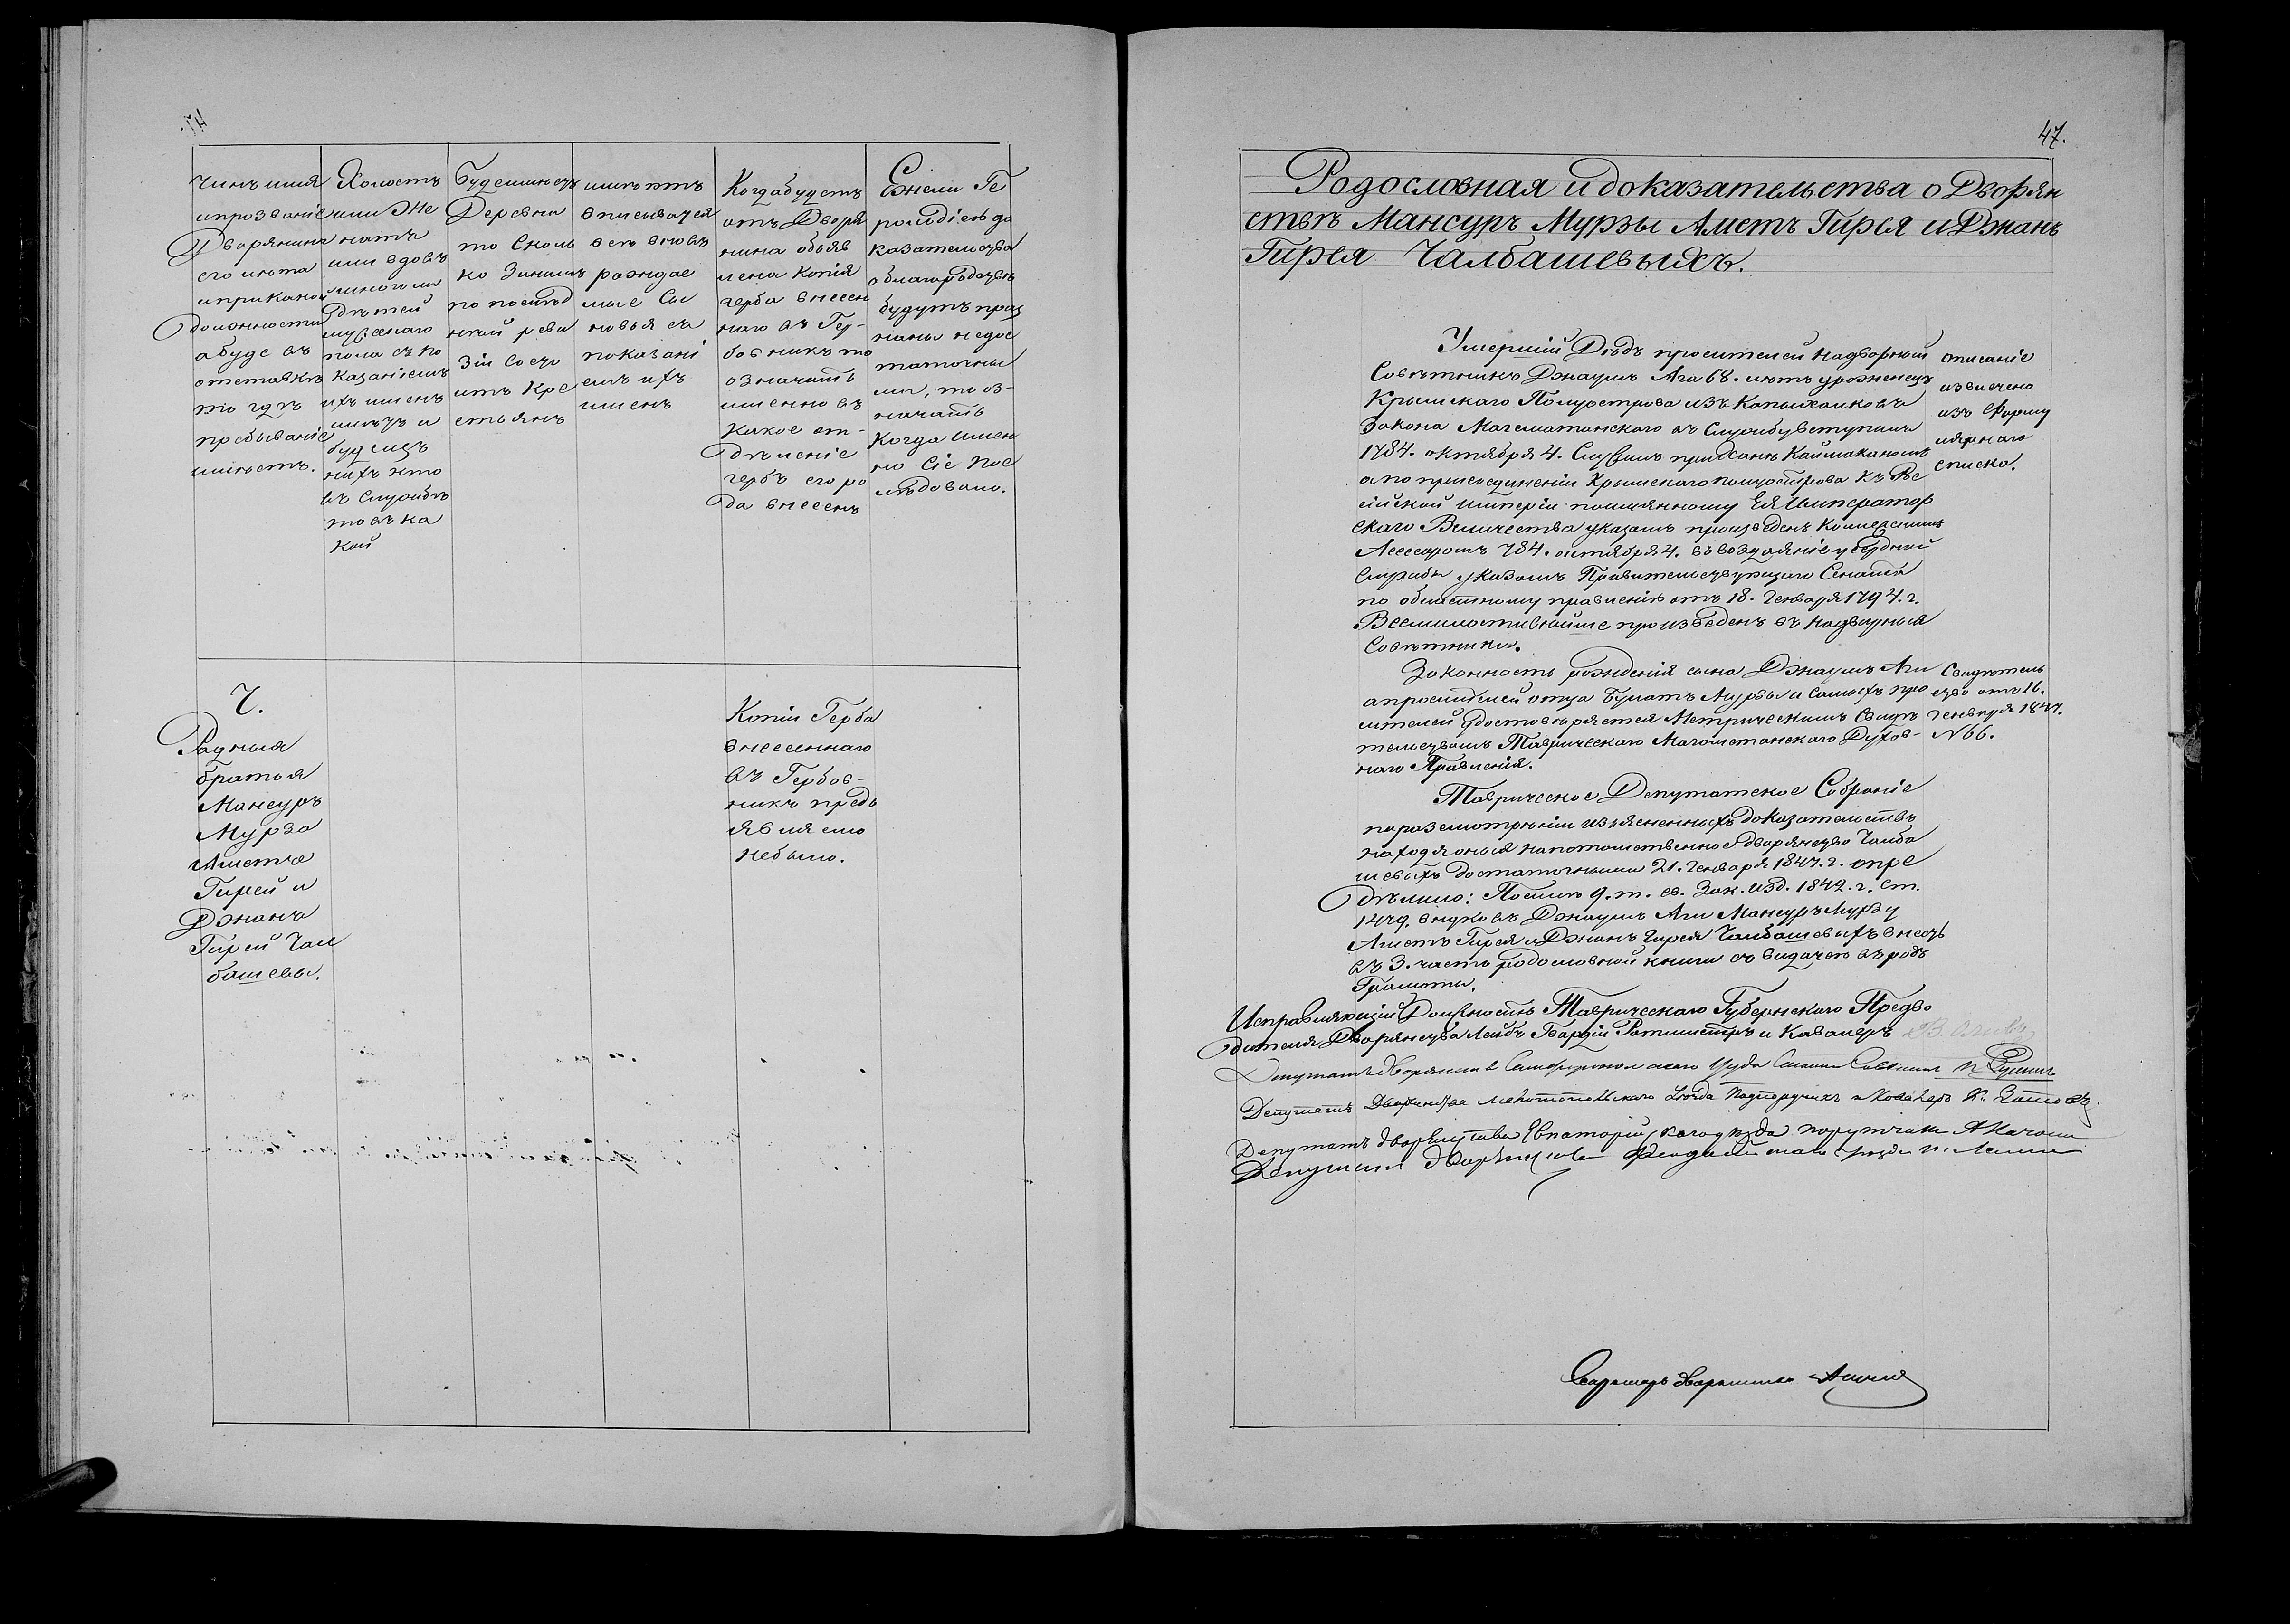 47.
Чинъ имя
и прозваніе
Дворянина
его лѣта
и при какой
должности
а буде въ
отставкѣ
то гдѣ
пребываніе
имѣетъ.
Холостъ
или же
натъ
или вдовъ
и много ли
дѣтей
мужескаго
пола съ по
казаніемъ
ихъ именъ
и лѣтъ и
буде изъ
нихъ кто
въ службѣ
то въ ка
кой
Буде имѣетъ
Деревни
то сколь
ко за нимъ
по послѣд
нѣй реви
зіи состо
итъ кре
стьянъ
имѣютъ
вписыватся
всѣ вновь
раждае
мые сы
новья съ
показані
емъ ихъ
именъ
Когда будетъ
отъ Дворя
нина объяв
лена копія
герба внесен
наго въ Гер-
бовникъ то
означать
именно въ
какое от-
дѣленіе
гербъ его ро
да внесенъ
Ежели Ге
рольдіею до
казательства
о благородствѣ
будутъ приз
наны недос
таточны
ми, то оз-
начать
когда имен
но сіе пос
лѣдовало.
Ч.
Родныя
братья
Мансуръ
Мурза
Аметъ
Гирей и
Джанъ
Гирей Чал
башевы.
Копіи Герба
внесеннаго
въ Гербов-
никъ предъ
являемо
небыло.
47.
Родословная и доказательства о Дворян
ствѣ Мансуръ Мурзы Аметъ Гирея и Джанъ
Гирея Чалбашевыхъ.
Умершій Дѣдъ просителей надворный
Совѣтникъ Джаумъ Ага 68. лѣтъ уроженецъ
Крымскаго Полуострова изъ Капыхалковъ
Закона Магаметанскаго въ службу вступилъ
1784. октября 4. Служилъ при Ханѣ Каймаканомъ
а по присоединеніи Крымскаго полуострова къ Рос
сійской Имперіи по имянному Ея Император
скаго Величества указомъ произведенъ Коллежскимъ
Асессоромъ 784. октября 4. въ воздаяніе усердной
службы указомъ Правительствующаго Сената
по областному правленію отъ 18. Генваря 1794. г.
Всемилостивѣйше произведенъ въ Надворныя
Совѣтники.
описаніе
извлечено
изъ Форму
лярнаго
списка.
Законность рожденія сына Джаумъ Аги
а просителей отца Булатъ Мурзы и самыхъ про
сителей удостовѣряется Метрическимъ Свидѣ
тельствомъ Таврическаго Магометанскаго Духов-
наго Правленія.
Свидѣтель
ство отъ 16.
Генваря 1847.
N 66.
Таврическое Депутатское Собраніе
по разсмотрѣніи изъясненныхъ доказательствъ
находя оныя на потомственное дворянство Чалба
шевыхъ достаточными 21. Генваря 1847. г. опре
дѣлило: По силѣ 9. т. св. Зак. изд. 1842. г. ст.
1479. внуковъ Джаумъ Аги Мансуръ Мурзу
Аметъ Гирея и Джанъ Гирея Чалбашевыхъ внесть
въ 3. часть родословной книги съ выдачею въ родъ
Грамоты.
Исправляющій Должность Таврическаго Губернскаго Предво
дителя Дворянства Лейбъ Гвардіи Ротмистръ и Кавалеръ
Депутатъ дворянства Симферопольскаго Уѣзда
Депутатъ Дворянства Мелитопольскаго Уѣзда Подпоручикъ и Кавалеръ
Депутатъ дворянства Евпаторійскаго уѣзда поручикъ
Депутатъ дворянства Феодосійскаго уѣзда
Секретарь дворянства